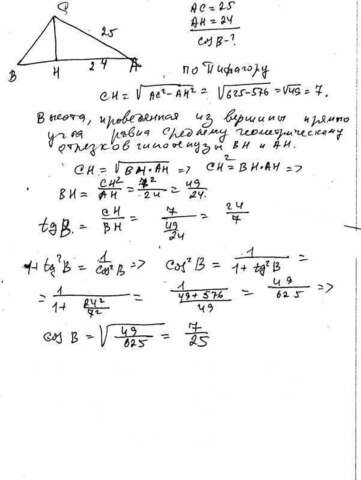 C
25
B H 24 A
AC = 25
AH = 24
cos B - ?
по Пифагору
CH = √AC² - AH² = √625 - 576 = √49 = 7.
Высота, проведенная из вершины прямого
угла равна среднему геометрическому
отрезков гипотенузы BH и AH.
CH = √BH · AH => CH² = BH · AH =>
BH = CH²/AH = 7²/24 = 49/24.
tg B = CH/BH = 7/(49/24) = 24/7
1 + tg²B = 1/cos²B => cos²B = 1/(1 + tg²B) =
= 1/(1 + 24²/7²) = 1/((49 + 576)/49) = 49/625 =>
cos B = √49/625 = 7/25